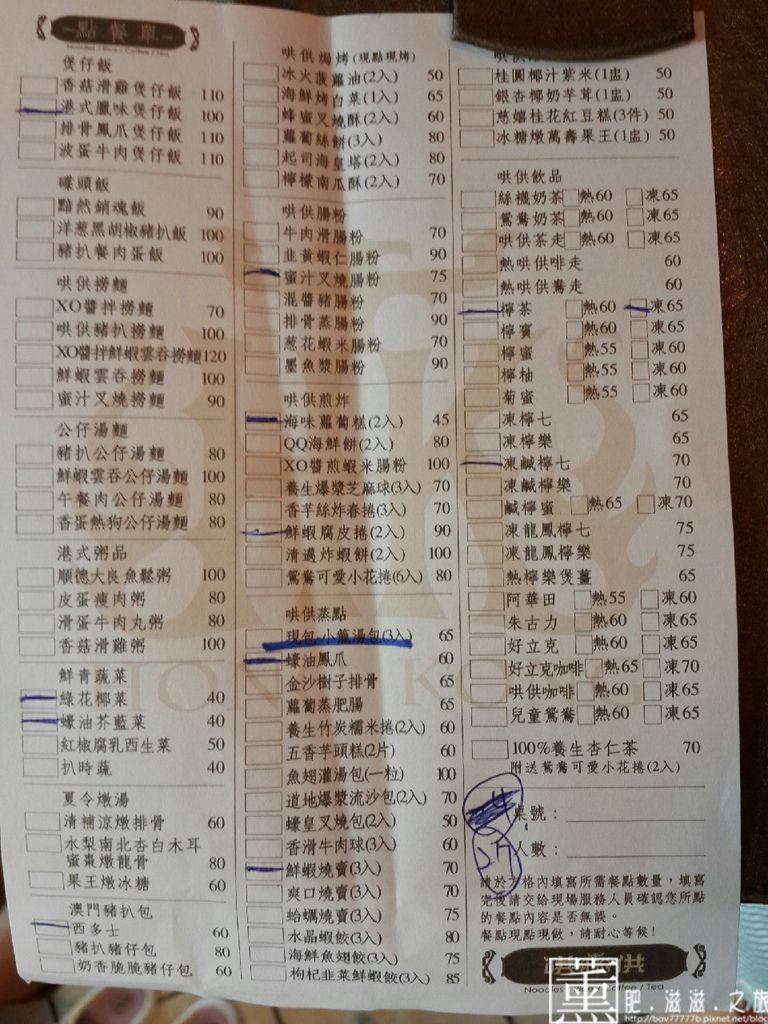 ~點餐單~
Noodles / Rice / Coffee / Tea
煲仔飯
香菇滑雞煲仔飯 110
港式臘味煲仔飯 100
排骨鳳爪煲仔飯 110
波蛋牛肉煲仔飯 110
碟頭飯
黯然銷魂飯 90
洋蔥黑胡椒豬扒飯 100
豬扒餐肉蛋飯 100
哄供撈麵
XO醬拌撈麵 70
哄供豬扒撈麵 100
XO醬拌鮮蝦雲吞撈麵 120
鮮蝦雲吞撈麵 100
蜜汁叉燒撈麵 90
公仔湯麵
豬扒公仔湯麵 80
鮮蝦雲吞公仔湯麵 100
午餐肉公仔湯麵 80
香蛋熱狗公仔湯麵 80
港式粥品
順德大良魚鬆粥 100
皮蛋瘦肉粥 80
滑蛋牛肉丸粥 80
香菇滑雞粥 100
鮮青蔬菜
綠花椰菜 40
蠔油芥藍菜 40
紅椒腐乳西生菜 50
扒時蔬 40
夏令燉湯
清補涼燉排骨 60
水梨南北杏白木耳
蜜棗燉龍骨 80
果王燉冰糖 60
澳門豬扒包
西多士 60
豬扒豬仔包 80
奶香脆脆豬仔包 60
哄供焗烤(現點現烤)
冰火菠蘿油(2入) 50
海鮮烤白菜(1入) 65
蜂蜜叉燒酥(2入) 60
蘿蔔絲餅(3入) 80
起司海皇塔(2入) 80
檸檬南瓜酥(2入) 70
哄供腸粉
牛肉滑腸粉 70
韭黃蝦仁腸粉 90
蜜汁叉燒腸粉 75
混醬豬腸粉 70
排骨蒸腸粉 90
蔥花蝦米腸粉 70
墨魚漿腸粉 90
哄供煎炸
海味蘿蔔糕(2入) 45
QQ海鮮餅(2入) 80
XO醬煎蝦米腸粉 100
養生爆漿芝麻球(3入) 70
香芋絲炸春捲(3入) 70
鮮蝦腐皮捲(2入) 90
清邁炸蝦餅(2入) 100
鴛鴦可愛小花捲(6入) 80
哄供蒸點
現包小籠湯包(3入) 65
蠔油鳳爪 60
金沙樹子排骨 65
蘿蔔蒸肥腸 65
養生竹炭糯米捲(2入) 60
五香芋頭糕(2片) 60
魚翅灌湯包(一粒) 100
道地爆漿流沙包(2入) 70
蠔皇叉燒包(2入) 50
香滑牛肉球(3入) 60
鮮蝦燒賣(3入) 70
爽口燒賣(3入) 70
蛤蠣燒賣(3入) 75
水晶蝦餃(3入) 80
海鮮魚翅餃(3入) 75
枸杞韭菜鮮蝦餃(3入) 85
桂圓椰汁紫米(1盅) 50
銀杏椰奶芋茸(1盅) 50
慈嬉桂花紅豆糕(3件) 50
冰糖燉萬壽果王(1盅) 50
哄供飲品
絲襪奶茶 熱60 凍65
鴛鴦奶茶 熱60 凍65
哄供茶走 熱60 凍65
熱哄供啡走 60
熱哄供鴦走 60
檸茶 熱60 凍65
檸賓 熱60 凍65
檸蜜 熱55 凍60
檸柚 熱55 凍60
菊蜜 熱55 凍60
凍檸七 65
凍檸樂 65
凍鹹檸七 70
凍鹹檸樂 70
鹹檸蜜 熱65 凍70
凍龍鳳檸七 75
凍龍鳳檸樂 75
熱檸樂煲薑 65
阿華田 熱55 凍60
朱古力 熱60 凍65
好立克 熱60 凍65
好立克咖啡 熱65 凍70
哄供咖啡 熱60 凍65
兒童鴛鴦 熱60 凍65
100%養生杏仁茶 70
附送鴛鴦可愛小花捲(2入)
桌號：
人數：
請於方格內填寫所需餐點數量，填寫
完後請交給現場服務人員確認您所點
的餐點內容是否無誤。
餐點現點現做，請耐心等候！
黑肥.滋滋.之旅
http://bov77777b.pixnet.net/blog